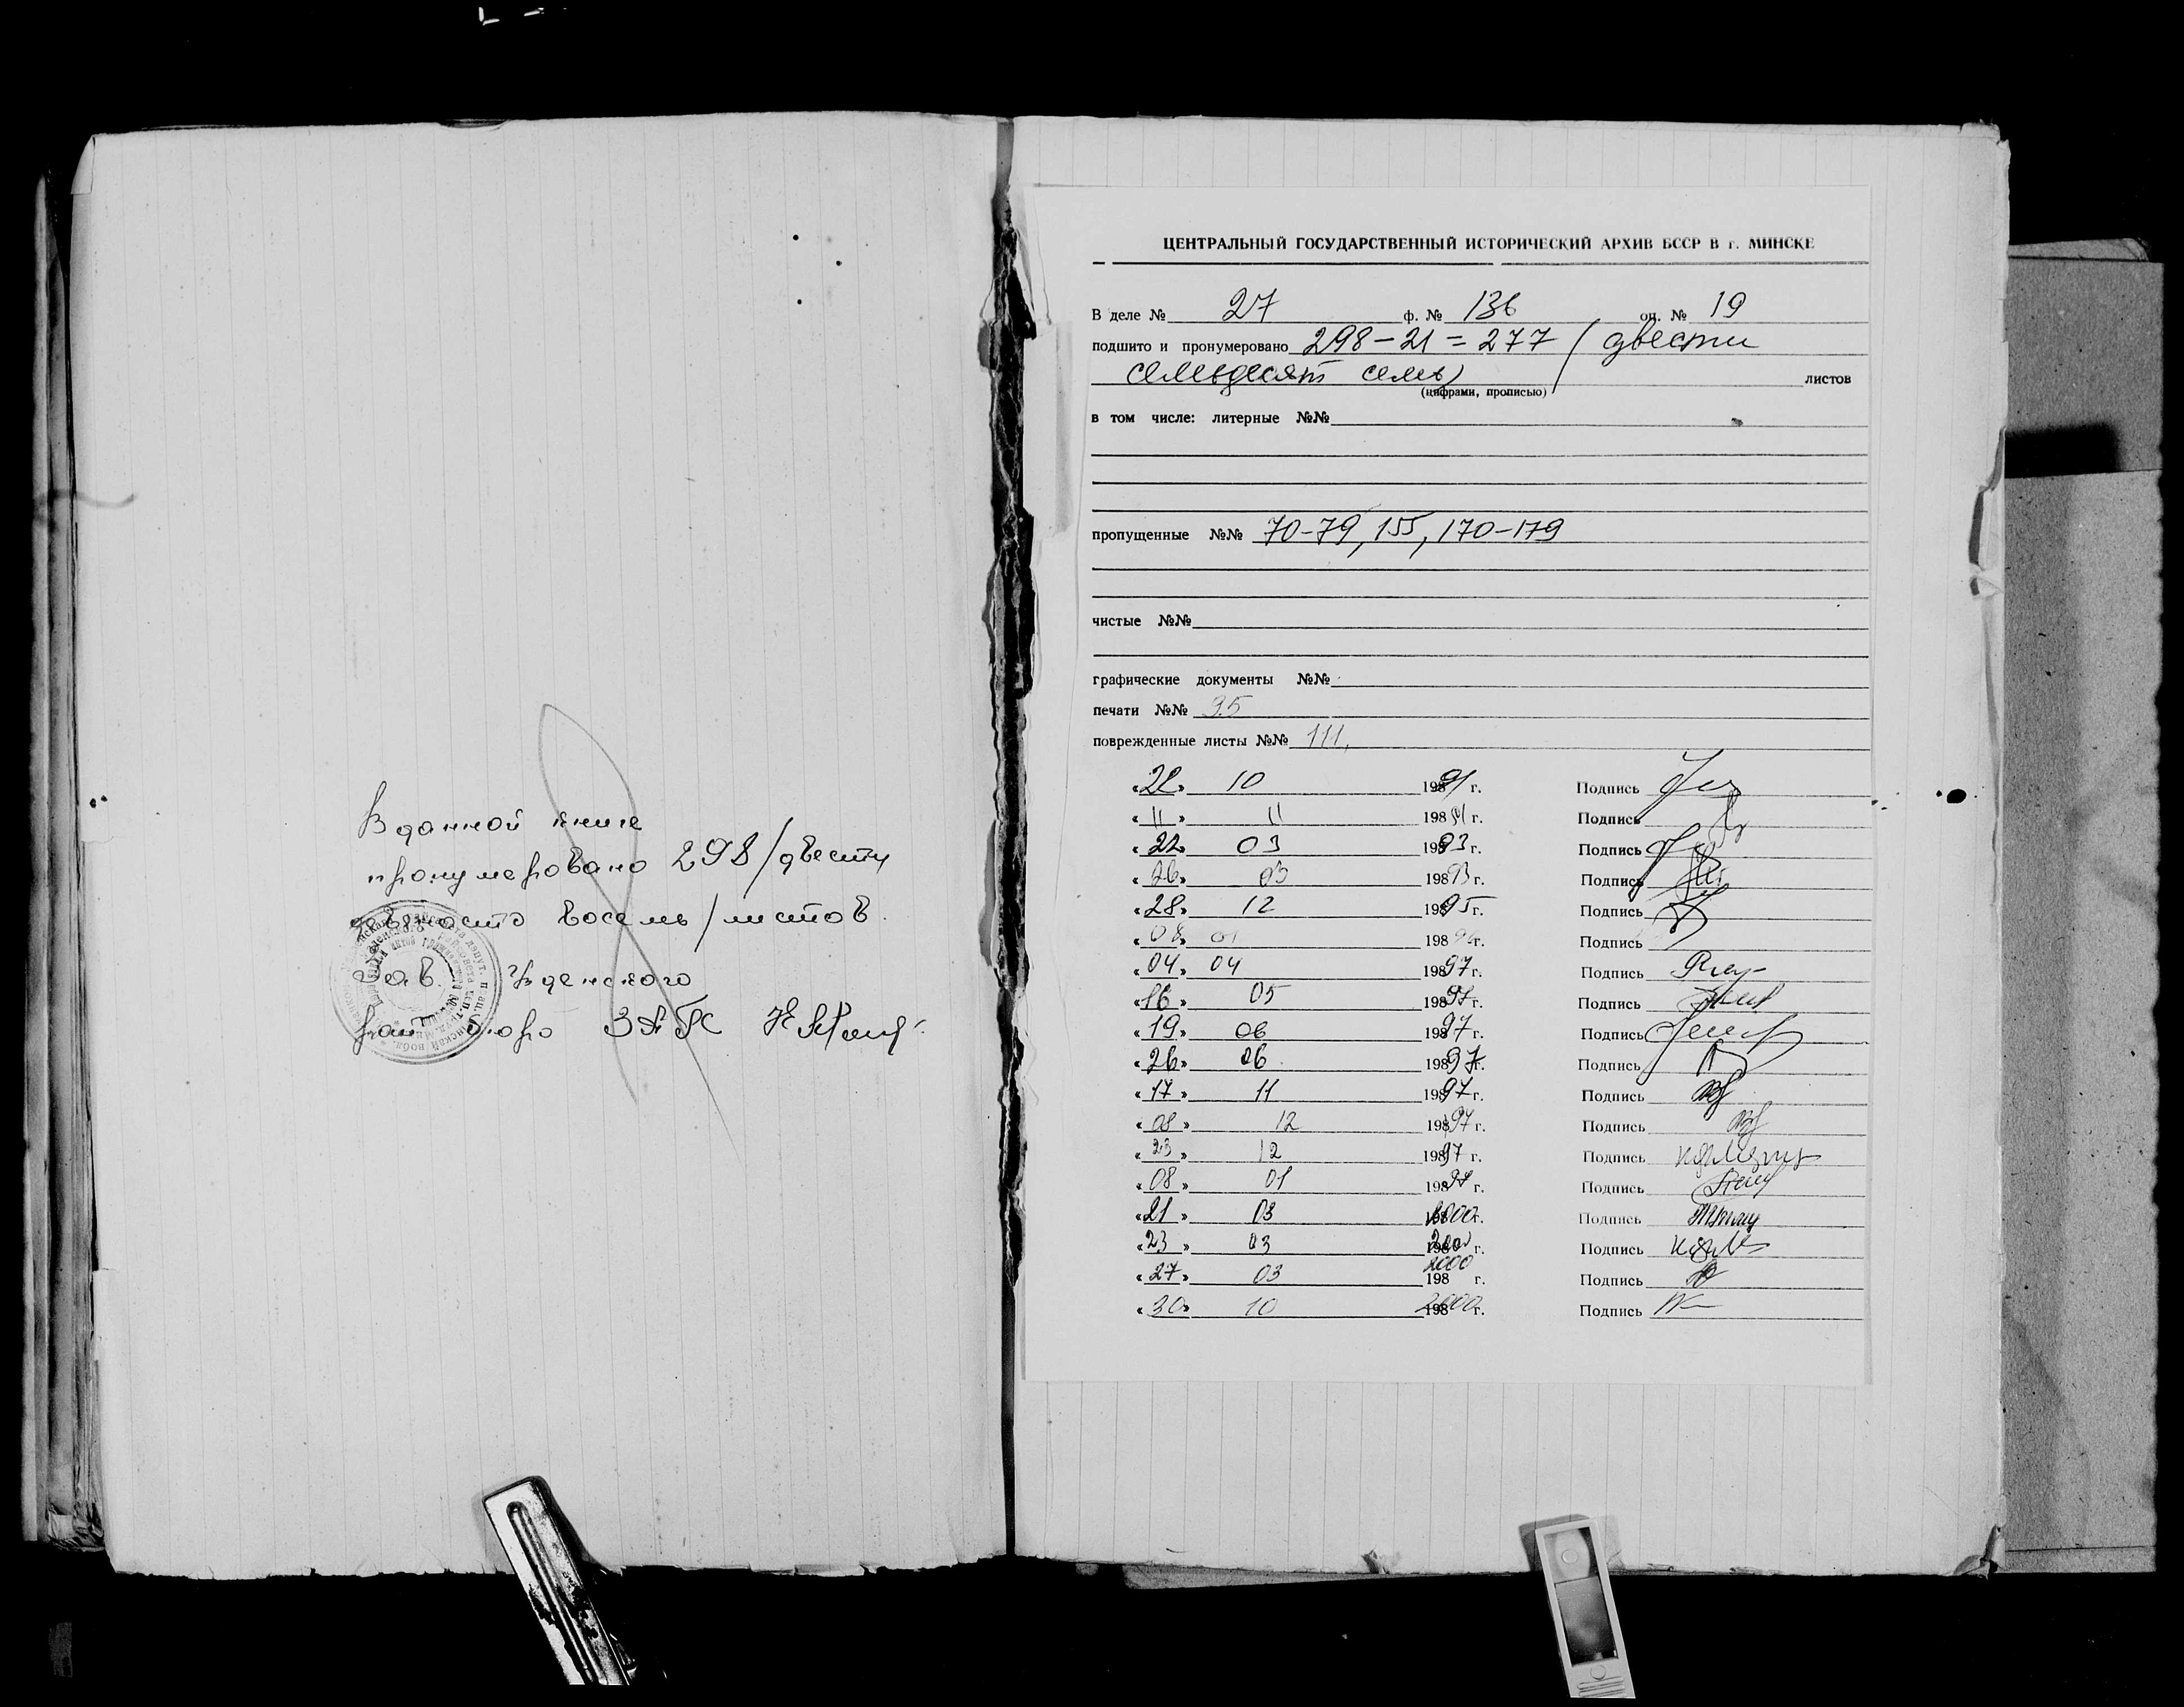 В данной книге
пронумеровано 298/двести
девяносто восемь/листов.
Зав. Узденского
рай бюро ЗАГС
ЦЕНТРАЛЬНЫЙ ГОСУДАРСТВЕННЫЙ ИСТОРИЧЕСКИЙ АРХИВ БССР В г. МИНСКЕ
В деле № 27 ф. № 136 оп. № 19
подшито и пронумеровано 298-21=277 (двести
семьдесят семь) листов
(цифрами, прописью)
в том числе: литерные №№
пропущенные №№ 70-79, 155, 170-179
чистые №№
графические документы №№
печати №№ 95
поврежденные листы №№ 111,
«22» 10 19891 г. Подпись
«11» 11 19891 г. Подпись
«22» 03 19893 г. Подпись
«26» 03 19893 г. Подпись
«28» 12 19895 г. Подпись
«08» 01 19896 г. Подпись
«04» 04 19897 г. Подпись
«16» 05 19897 г. Подпись
«19» 06 19897 г. Подпись
«26» 06 19897 г. Подпись
«17» 11 19897 г. Подпись
«08» 12 19897 г. Подпись
«23» 12 19897 г. Подпись
«08» 01 198 г. Подпись
«21» 03 2000 г. Подпись
«23» 03 2000 г. Подпись
«27» 03 2000 198 г. Подпись
«30» 10 2000 г. Подпись